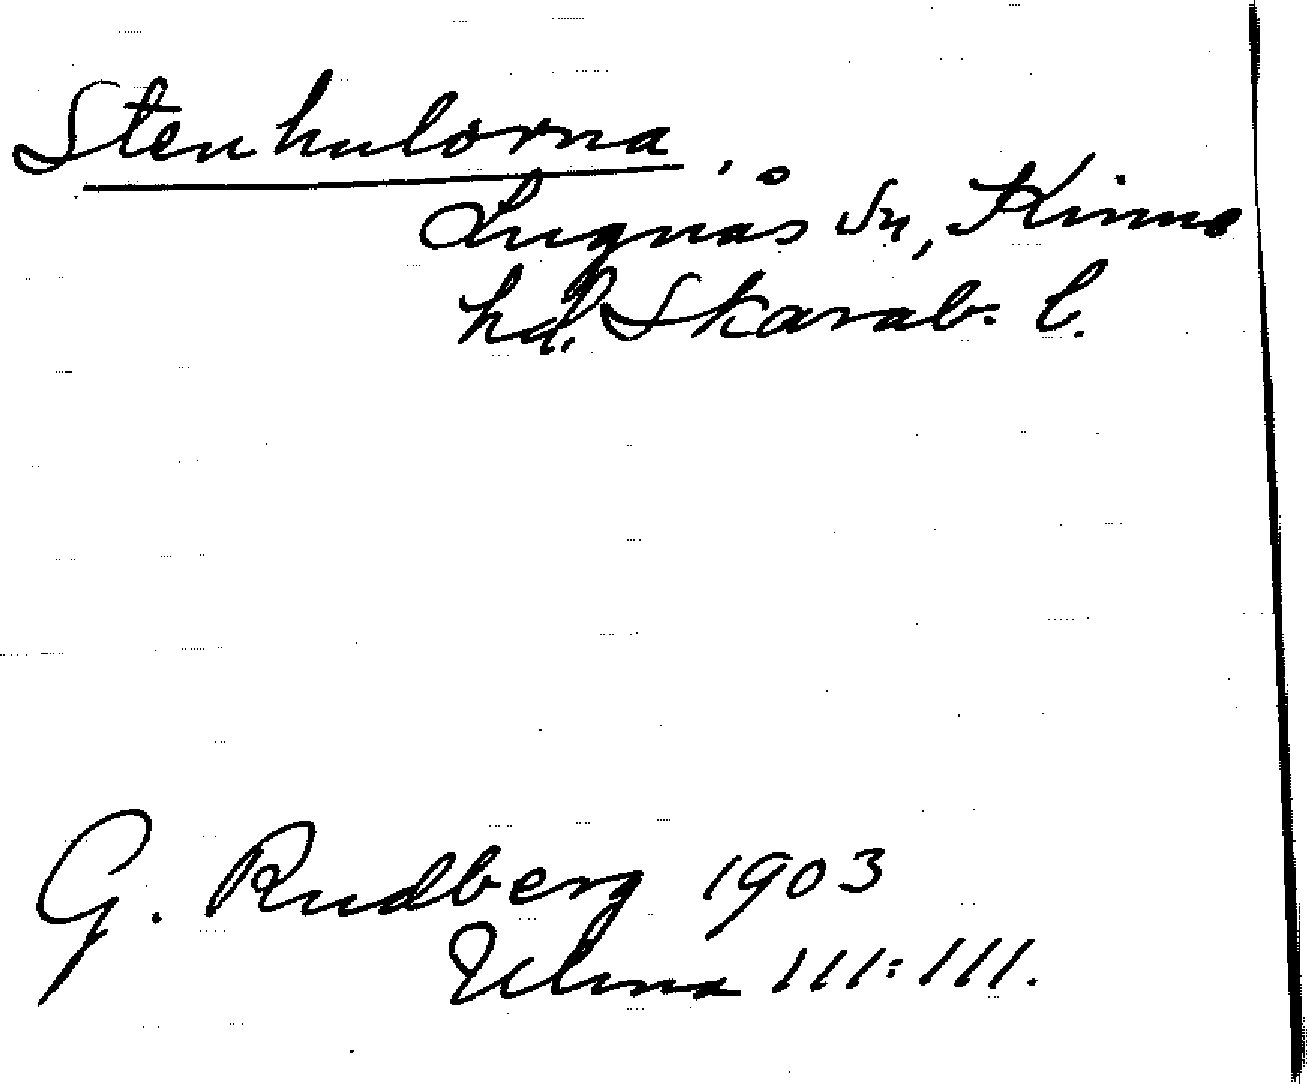 Stenhulorna
Lugnås sn, Kinne
hd. Skarab. l.
G. Rudberg 1903
Ulma 111:111.